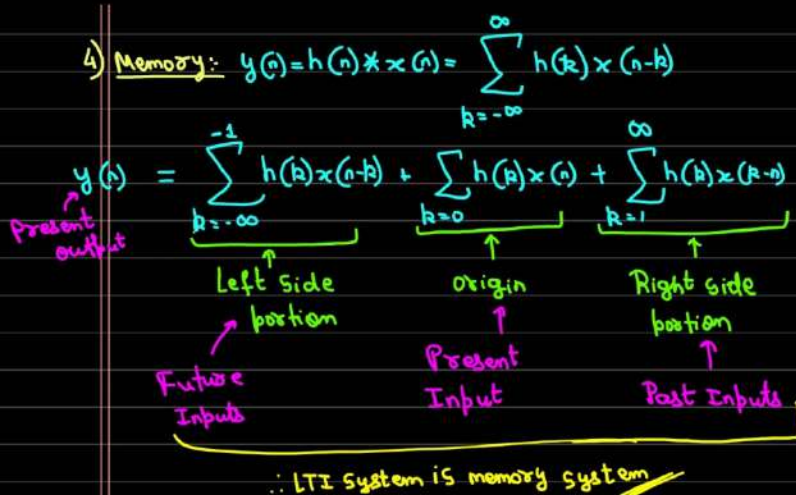 4) Memory:- y(n)=h(n)*x(n)= ∞ ∑ k=-∞ h(k)x(n-k)
y(n) = -1 ∑ k=-∞ h(k)x(n-k) + ∑ k=0 h(k)x(n) + ∞ ∑ k=1 h(k)x(k-n)
Present output
Left side portion
origin
Right side portion
Future Inputs
Present Input
Past Inputs.
∴ LTI system is memory system